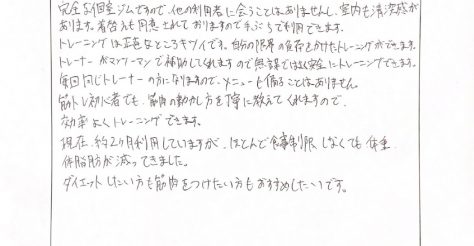 完全な個室ジムですので、他の利用者に会うことはありませんし、室内も清潔感が
あります。着替えも用意されておりますので手ぶらで利用できます。
トレーニングは正直なところキツイです。自分の限界の負荷をかけたトレーニングができます。
トレーナーがマンツーマンで補助してくれますので無謀ではなく安全にトレーニングできます。
毎回同じトレーナーの方になりますので、メニューも偏ることはありません。
筋トレ初心者でも、筋肉の動かし方を丁寧に教えてくれますので、
効率よくトレーニングできます。
現在、約2ヶ月利用していますが、ほとんど食事制限しなくても体重
体脂肪が減ってきました。
ダイエットしたい方も筋肉をつけたい方もおすすめしたいです。